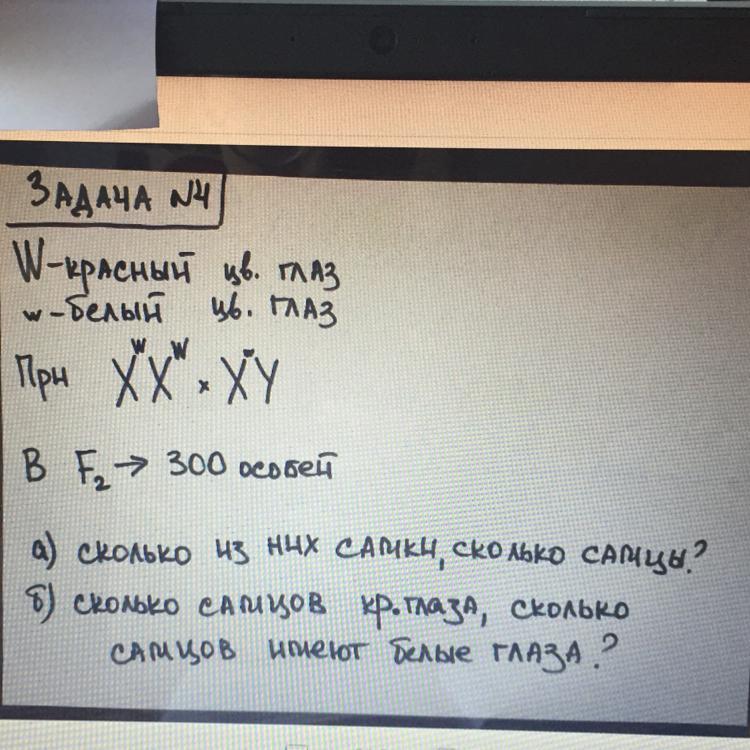 Задача №4
W-красный цв. глаз
w-белый цв. глаз
При XᵂXᵂ × XʷY
В F₂ → 300 особей
а) сколько из них самки, сколько самцы?
б) сколько самцов кр. глаза, сколько
самцов имеют белые глаза?